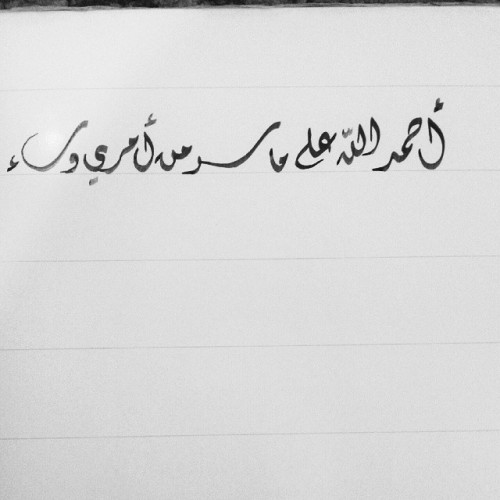 أحمد الله على ما سر من أمري وساء